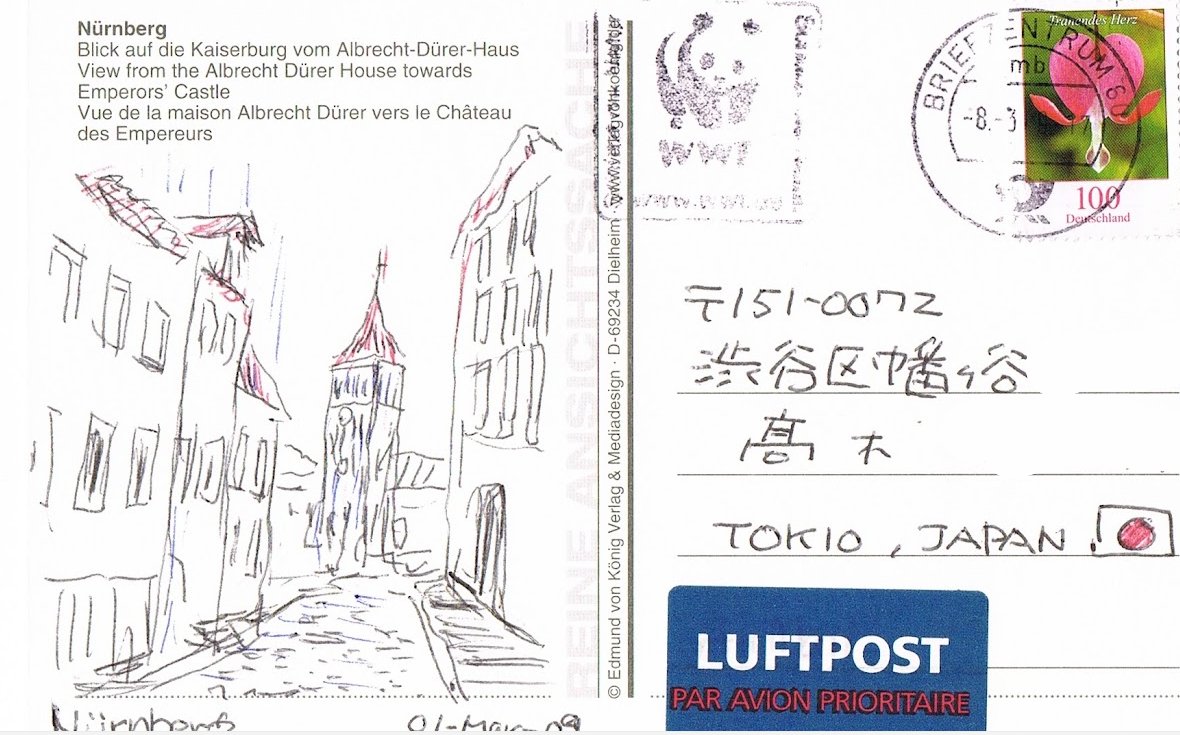 Nürnberg
Blick auf die Kaiserburg vom Albrecht-Dürer-Haus
View from the Albrecht Dürer House towards
Emperors' Castle
Vue de la maison Albrecht Dürer vers le Château
des Empereurs
Nürnberg
01-Mar-09
REINE ANSICHTSSACHE
© Edmund von König Verlag & Mediadesign · D-69234 Dielheim · www.verlagvonkoenig.de
WWF
BRIEFZENTRUM 60
mb
-8.-3
Tränendes Herz
100
Deutschland
〒151-0072
渋谷区幡ヶ谷
髙木
TOKIO, JAPAN.
LUFTPOST
PAR AVION PRIORITAIRE